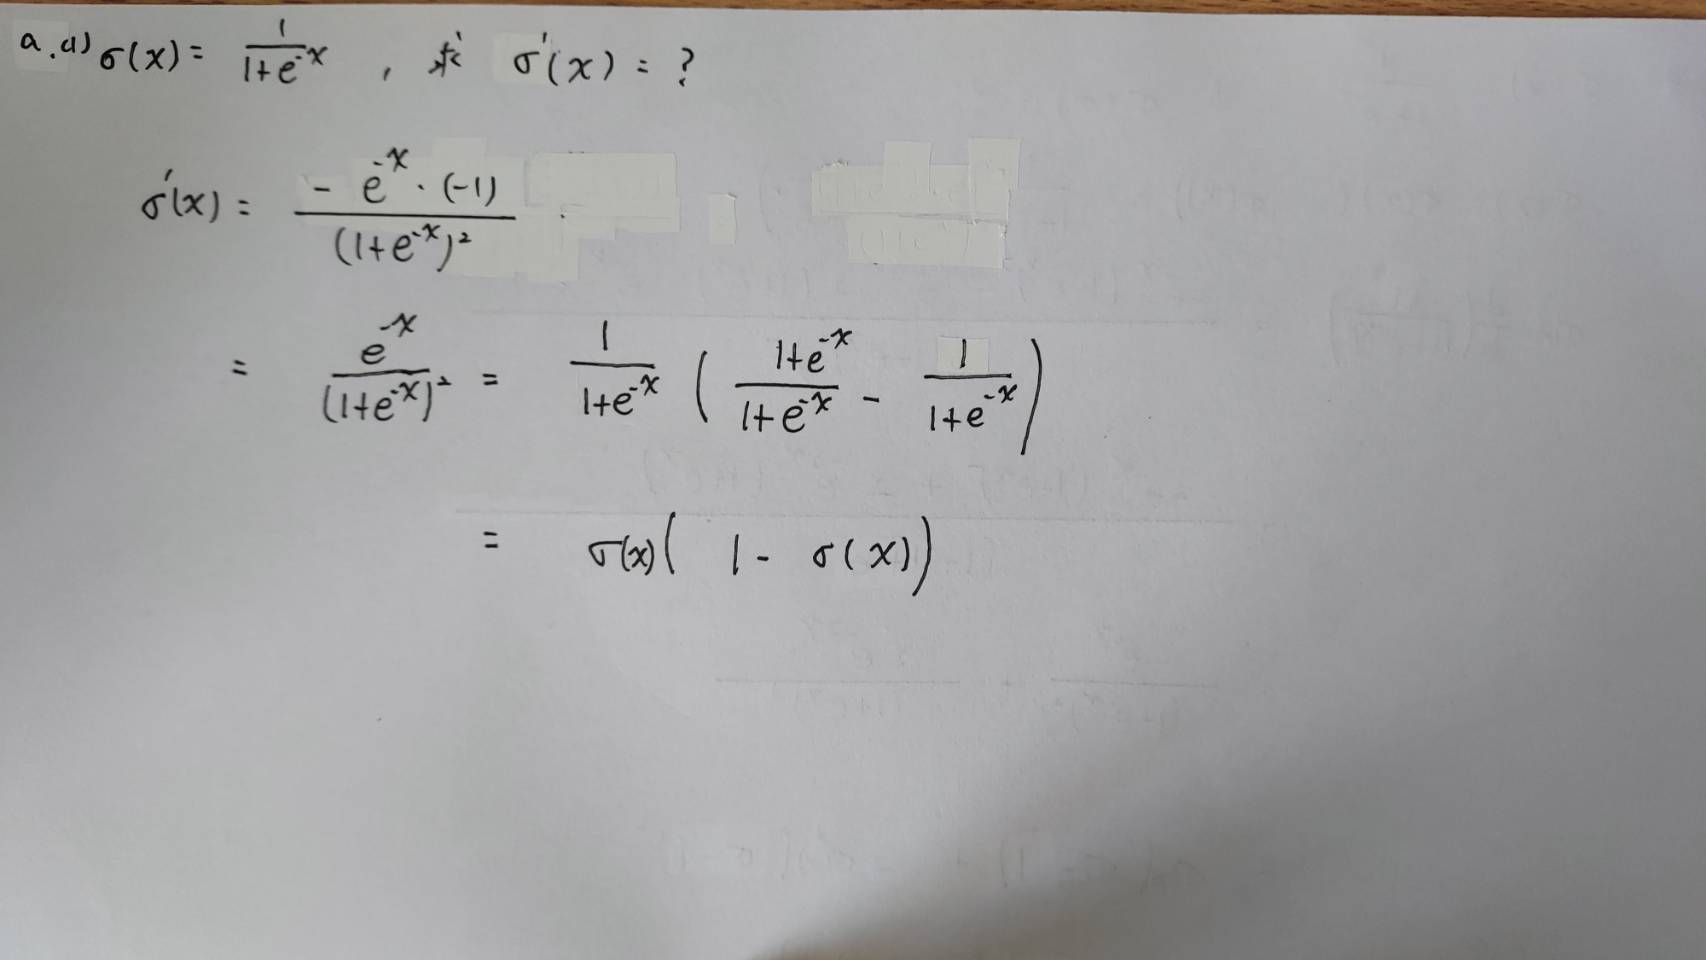 a.(1) σ(x) = 1/(1+e^-x) , 求 σ'(x) = ?
σ'(x) = (- e^-x · (-1))/(1+e^-x)²
= e^-x/(1+e^-x)² = 1/(1+e^-x) ( (1+e^-x)/(1+e^-x) - 1/(1+e^-x) )
= σ(x)( 1 - σ(x))